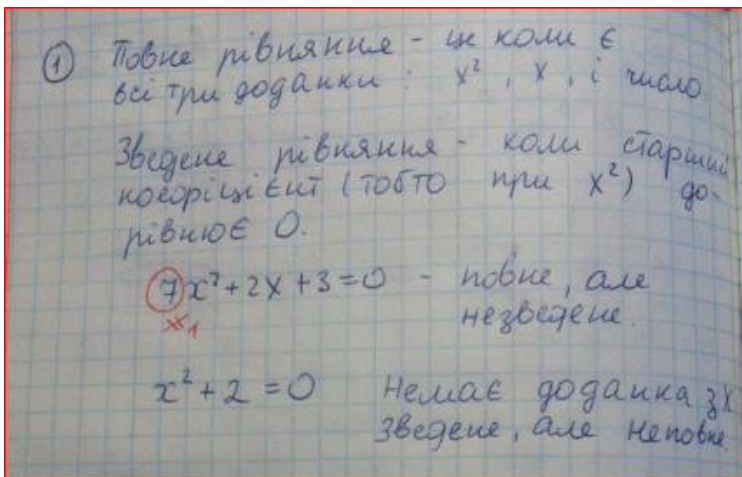 ① Повне рівняння - це коли є
всі три доданки : x², x, і число
Зведене рівняння - коли старший
коефіцієнт (тобто при x²) до-
рівнює 0.
7x²+2x+3=0 - повне, але
≠1 незведене.
x²+2=0 Немає доданка з x
Зведене, але неповне.